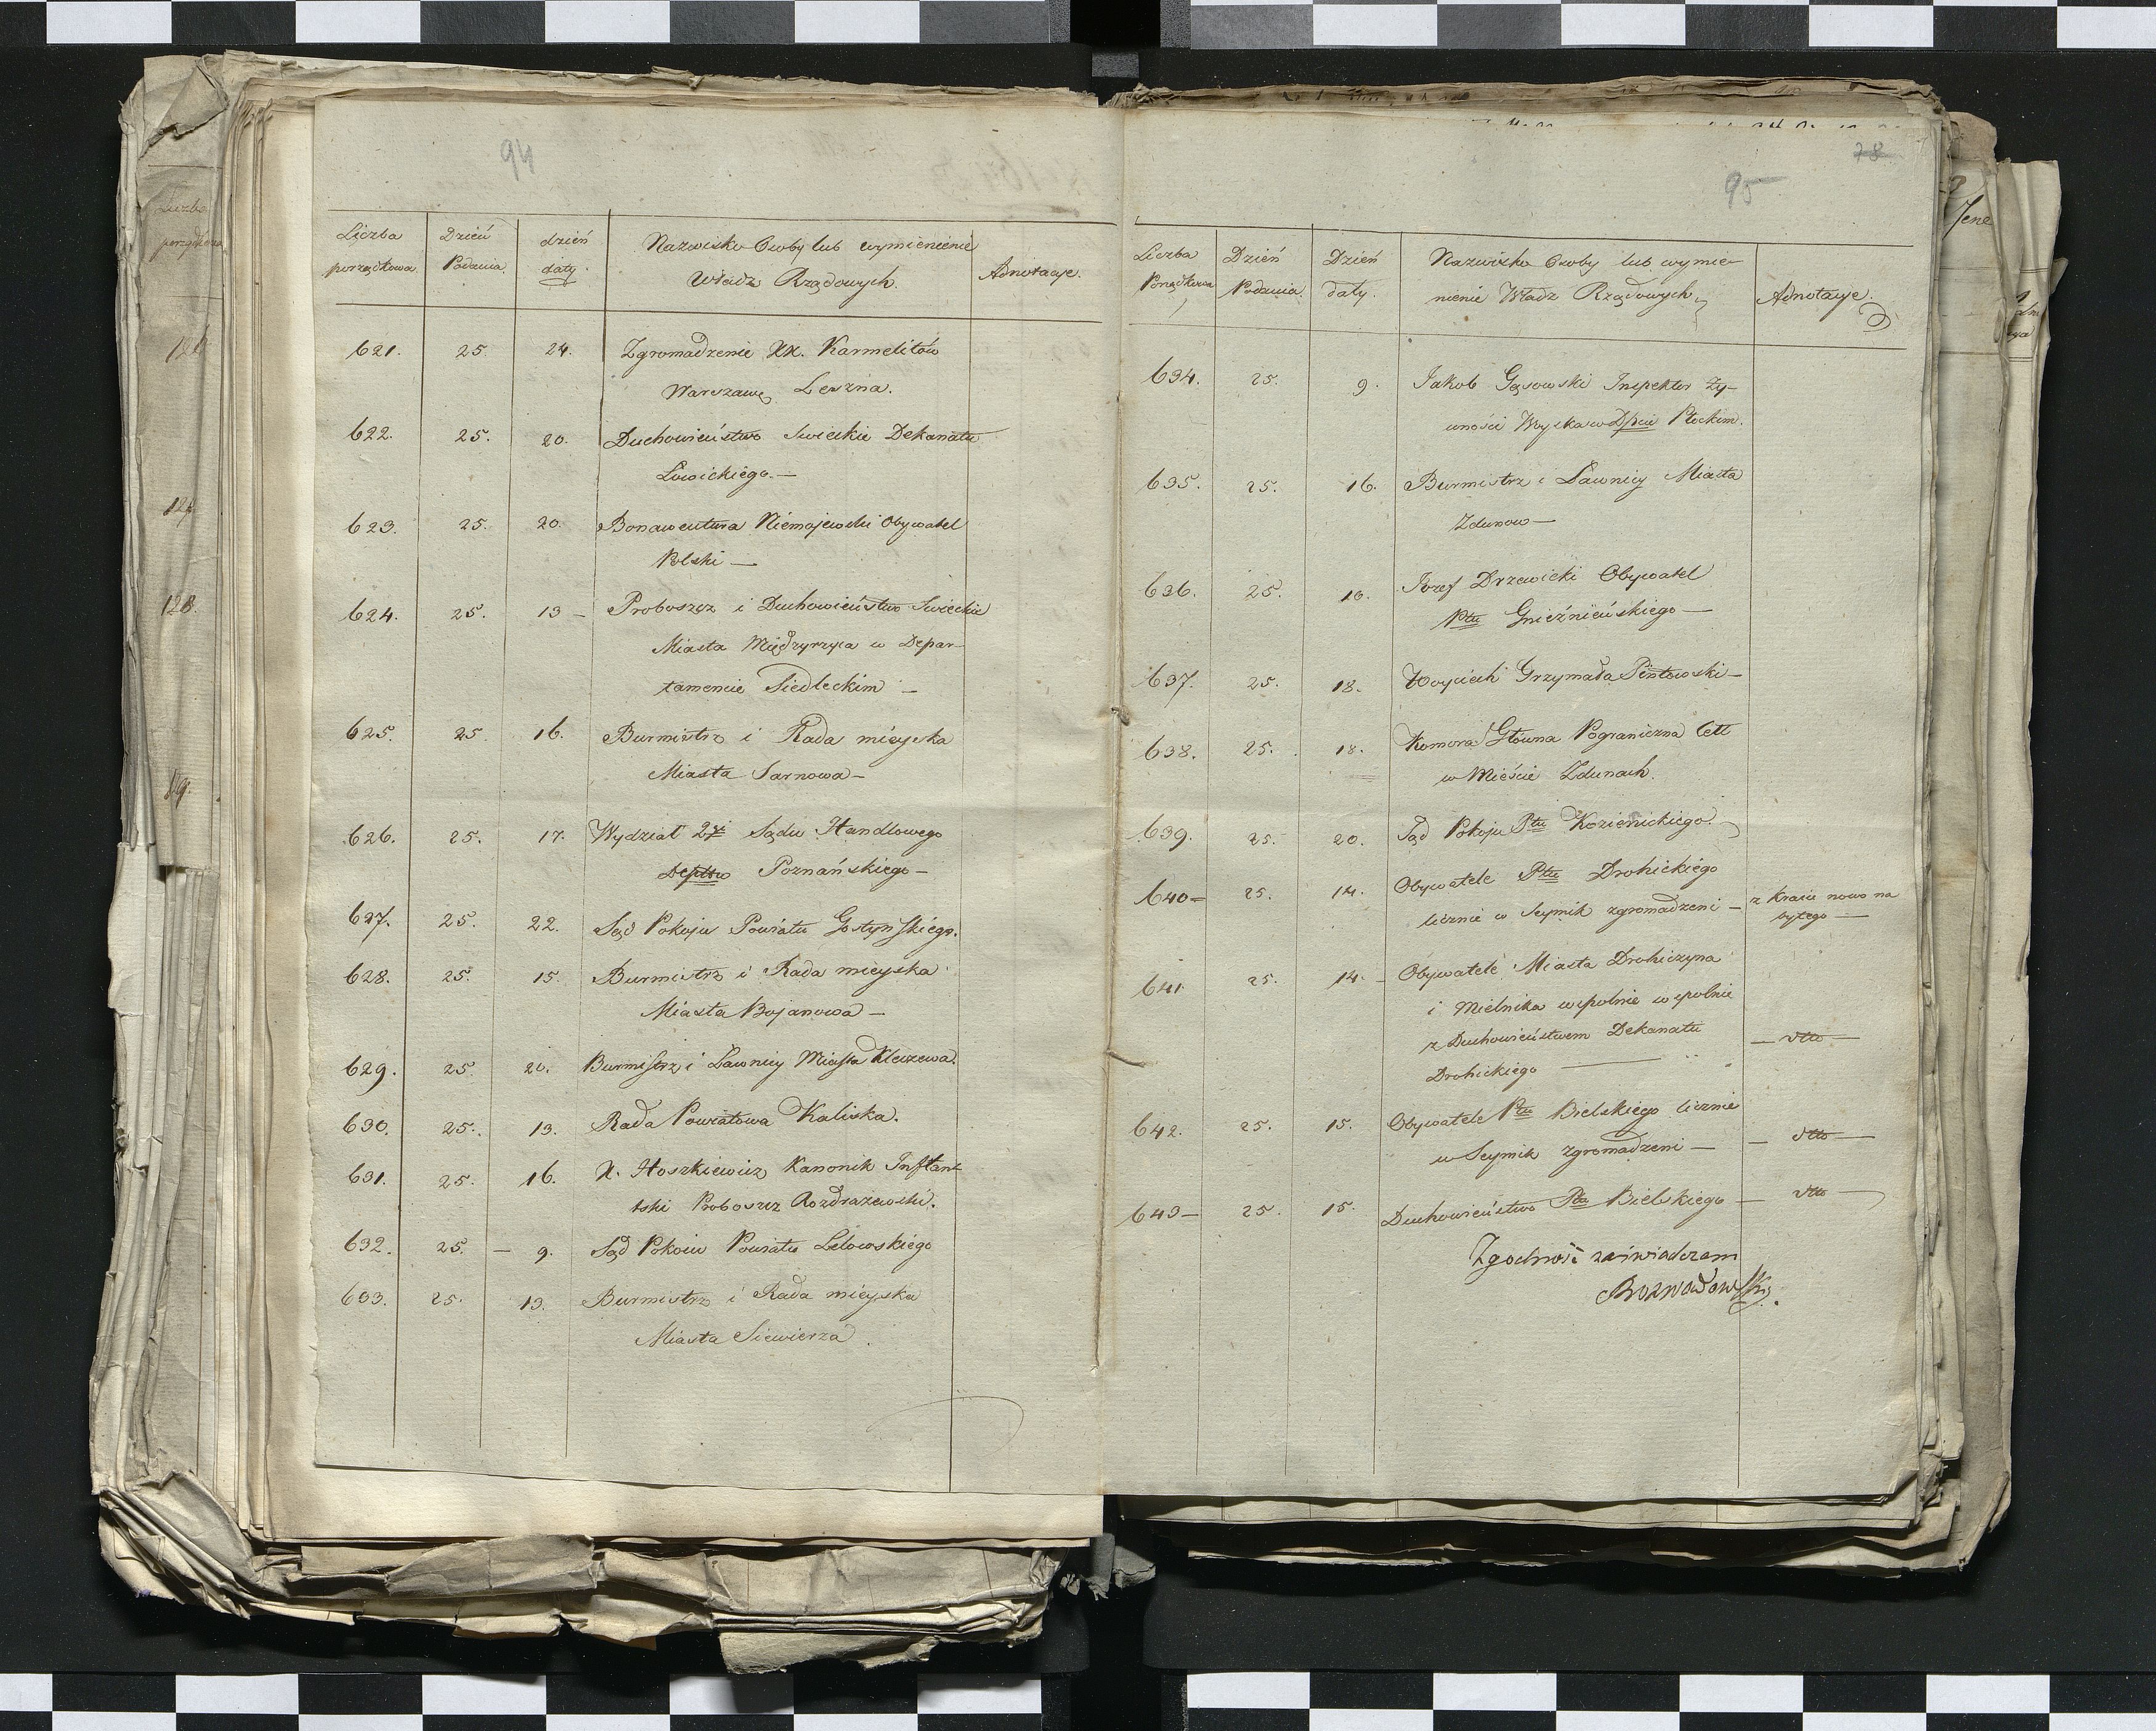 94
Liczba porządkowa. Dzień Podania. dzień daty. Nazwisko Osoby lub wymienienie Władz Rządowych. Adnotacye.
621. 25. 24. Zgromadzenie XX. Karmelitów
Warszawę Leszna.
622. 25. 20. Duchowieństwo Swieckie Dekanatu
Liwickiego.—
623. 25. 20. Bonawentura Niemojewski Obywatel
Polski —
624. 25. 13 – Proboszcz i Duchowieństwo Swieckie
Miasta Międzyrzyca w Depar-
tamencie Siedleckim –
625. 25 16. Burmistrz i Rada mieyska
Miasta Sarnowa –
626. 25. 17. Wydział 2gi Sądu Handlowego
Deptto Poznańskiego –
627. 25 22. Sąd Pokoju Powiatu Gostynskiego.
628. 25. 15. Burmistrz i Rada mieyska
Miasta Bojanowa –
629. 25. 20. Burmistrz i Ławnicy Miasta Kleczewa.
630. 25. 13. Rada Powiatowa Kaliska.
631. 25. 16. X. Hoszkiewicz Kanonik Inflant
tski Proboszcz Rozdrażewski.
632. 25. – 9. Sąd Pokoiu Powiatu Lelowskiego
633. 25. 13. Burmistrz i Rada mieyska
Miasta Siewierza.
78
95
Liczba Porządkowa Dzień Podania. Dzień daty. Nazwisko Osoby lub wymie-
nienie Władz Rządowych. Adnotacye.
634. 25. 9. Jakob Gąsowski Inspektor Zy-
wności Woyska w Dpcie Płockim.
635. 25. 16. Burmistrz i Ławnicy Miasta
Zdunow —
636. 25. 16. Jozef Drzewicki Obywatel
Ptu Gnieźnieńskiego —
637. 25. 18. Woyciech Grzymała Pintowski –
638. 25. 18. Komora Głowna Pograniczna Cełł
w Mieście Zdunach.
639. 25. 20. Sąd Pokoju Ptu Kozienickiego.
640 – 25. 14. Obywatele Ptu Drohickiego
licznie w Seymik zgromadzeni – z Kraiu nowo na
bytego —
641. 25. 14. – Obywatele Miasta Drohiczyna
i Mielnika wspolnie wspolnie
z Duchowieństwem Dekanatu — dtto —
Drohickiego —
642. 25. 15. Obywatele Ptu Bielskiego licznie
w Seymik zgromadzeni — – dtto —
643 – 25. 15. Duchowieństwo Ptu Bielskiego – dtto —
Zgodność zaświadczam
Rozwadowski.